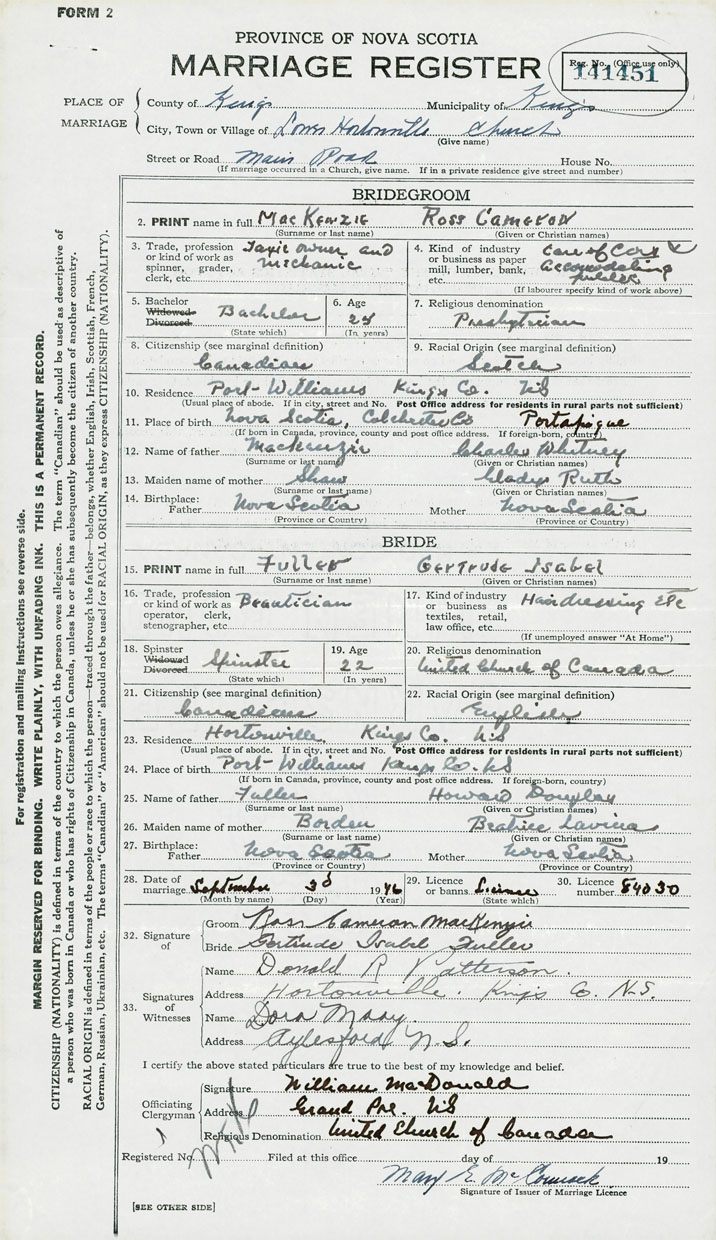 FORM 2
PROVINCE OF NOVA SCOTIA
MARRIAGE REGISTER
Reg. No. (Office use only)
141451
PLACE OF MARRIAGE
County of Kings Municipality of Kings
City, Town or Village of Lower Hortonville Church
(Give name)
Street or Road Main Road House No.
(If marriage occurred in a Church, give name. If in a private residence give street and number)
BRIDEGROOM
2. PRINT name in full MacKenzie Ross Cameron
(Surname or last name) (Given or Christian names)
3. Trade, profession or kind of work as spinner, grader, clerk, etc. Taxie owner and Mechanic
4. Kind of industry or business as paper mill, lumber, bank, etc. Care of Cars Accomodating public
(If labourer specify kind of work above)
5. Bachelor Widowed Divorced Bachelor
(State which)
6. Age
(In years)
7. Religious denomination
Presbyterian
8. Citizenship (see marginal definition)
Canadian
9. Racial Origin (see marginal definition)
Scotch
10. Residence Port-Williams Kings Co. NS
(Usual place of abode. If in city, street and No. Post Office address for residents in rural parts not sufficient)
11. Place of birth Nova Scotia, Colchester Co Portapique
(If born in Canada, province, county and post office address. If foreign-born, country)
12. Name of father Mackenzie Charles Whitney
(Surname or last name) (Given or Christian names)
13. Maiden name of mother Shaw Gladys Ruth
(Surname or last name) (Given or Christian names)
14. Birthplace: Father Nova Scotia Mother Nova Scotia
(Province or Country) (Province or Country)
BRIDE
15. PRINT name in full Fuller Gertrude Isabel
(Surname or last name) (Given or Christian names)
16. Trade, profession or kind of work as operator, clerk, stenographer, etc. Beautician
17. Kind of industry or business as textiles, retail, law office, etc. Hairdressing Etc
(If unemployed answer "At Home")
18. Spinster Widowed Divorced Spinster
(State which)
19. Age
22
(In years)
20. Religious denomination
United Church of Canada
21. Citizenship (see marginal definition)
Canadian
22. Racial Origin (see marginal definition)
English
23. Residence Hortonville, Kings Co. NS
(Usual place of abode. If in city, street and No. Post Office address for residents in rural parts not sufficient)
24. Place of birth Port-Williams Kings Co. NS
(If born in Canada, province, county and post office address. If foreign-born, country)
25. Name of father Fuller Howard Douglas
(Surname or last name) (Given or Christian names)
26. Maiden name of mother Borden Beatrice Lavina
(Surname or last name) (Given or Christian names)
27. Birthplace: Father Nova Scotia Mother Nova Scotia
(Province or Country) (Province or Country)
28. Date of marriage September 3d 1946
(Month by name) (Day) (Year)
29. Licence or banns License
(State which)
30. Licence number 84030
32. Signature of
Groom Ross Cameron MacKenzie
Bride Gertrude Isabel Fuller
33. Signatures of Witnesses
Name Donald R Patterson.
Address Hortonville. Kings Co. N.S.
Name Dora
Address Aylesford N.S.
I certify the above stated particulars are true to the best of my knowledge and belief.
Officiating Clergyman
Signature William MacDonald
Address Grand Pre. NS
Religious Denomination United Church of Canada
Registered No. Filed at this office day of 19
Mary E. McCormack
Signature of Issuer of Marriage Licence
[SEE OTHER SIDE]
For registration and mailing instructions see reverse side.
MARGIN RESERVED FOR BINDING. WRITE PLAINLY, WITH UNFADING INK. THIS IS A PERMANENT RECORD.
CITIZENSHIP (NATIONALITY) is defined in terms of the country to which the person owes allegiance. The term "Canadian" should be used as descriptive of
a person who was born in Canada or who has rights of Citizenship in Canada, unless he or she has subsequently become the citizen of another country.
RACIAL ORIGIN is defined in terms of the people or race to which the person—traced through the father—belongs, whether English, Irish, Scottish, French,
German, Russian, Ukrainian, etc. The terms "Canadian" or "American" should not be used for RACIAL ORIGIN, as they express CITIZENSHIP (NATIONALITY).